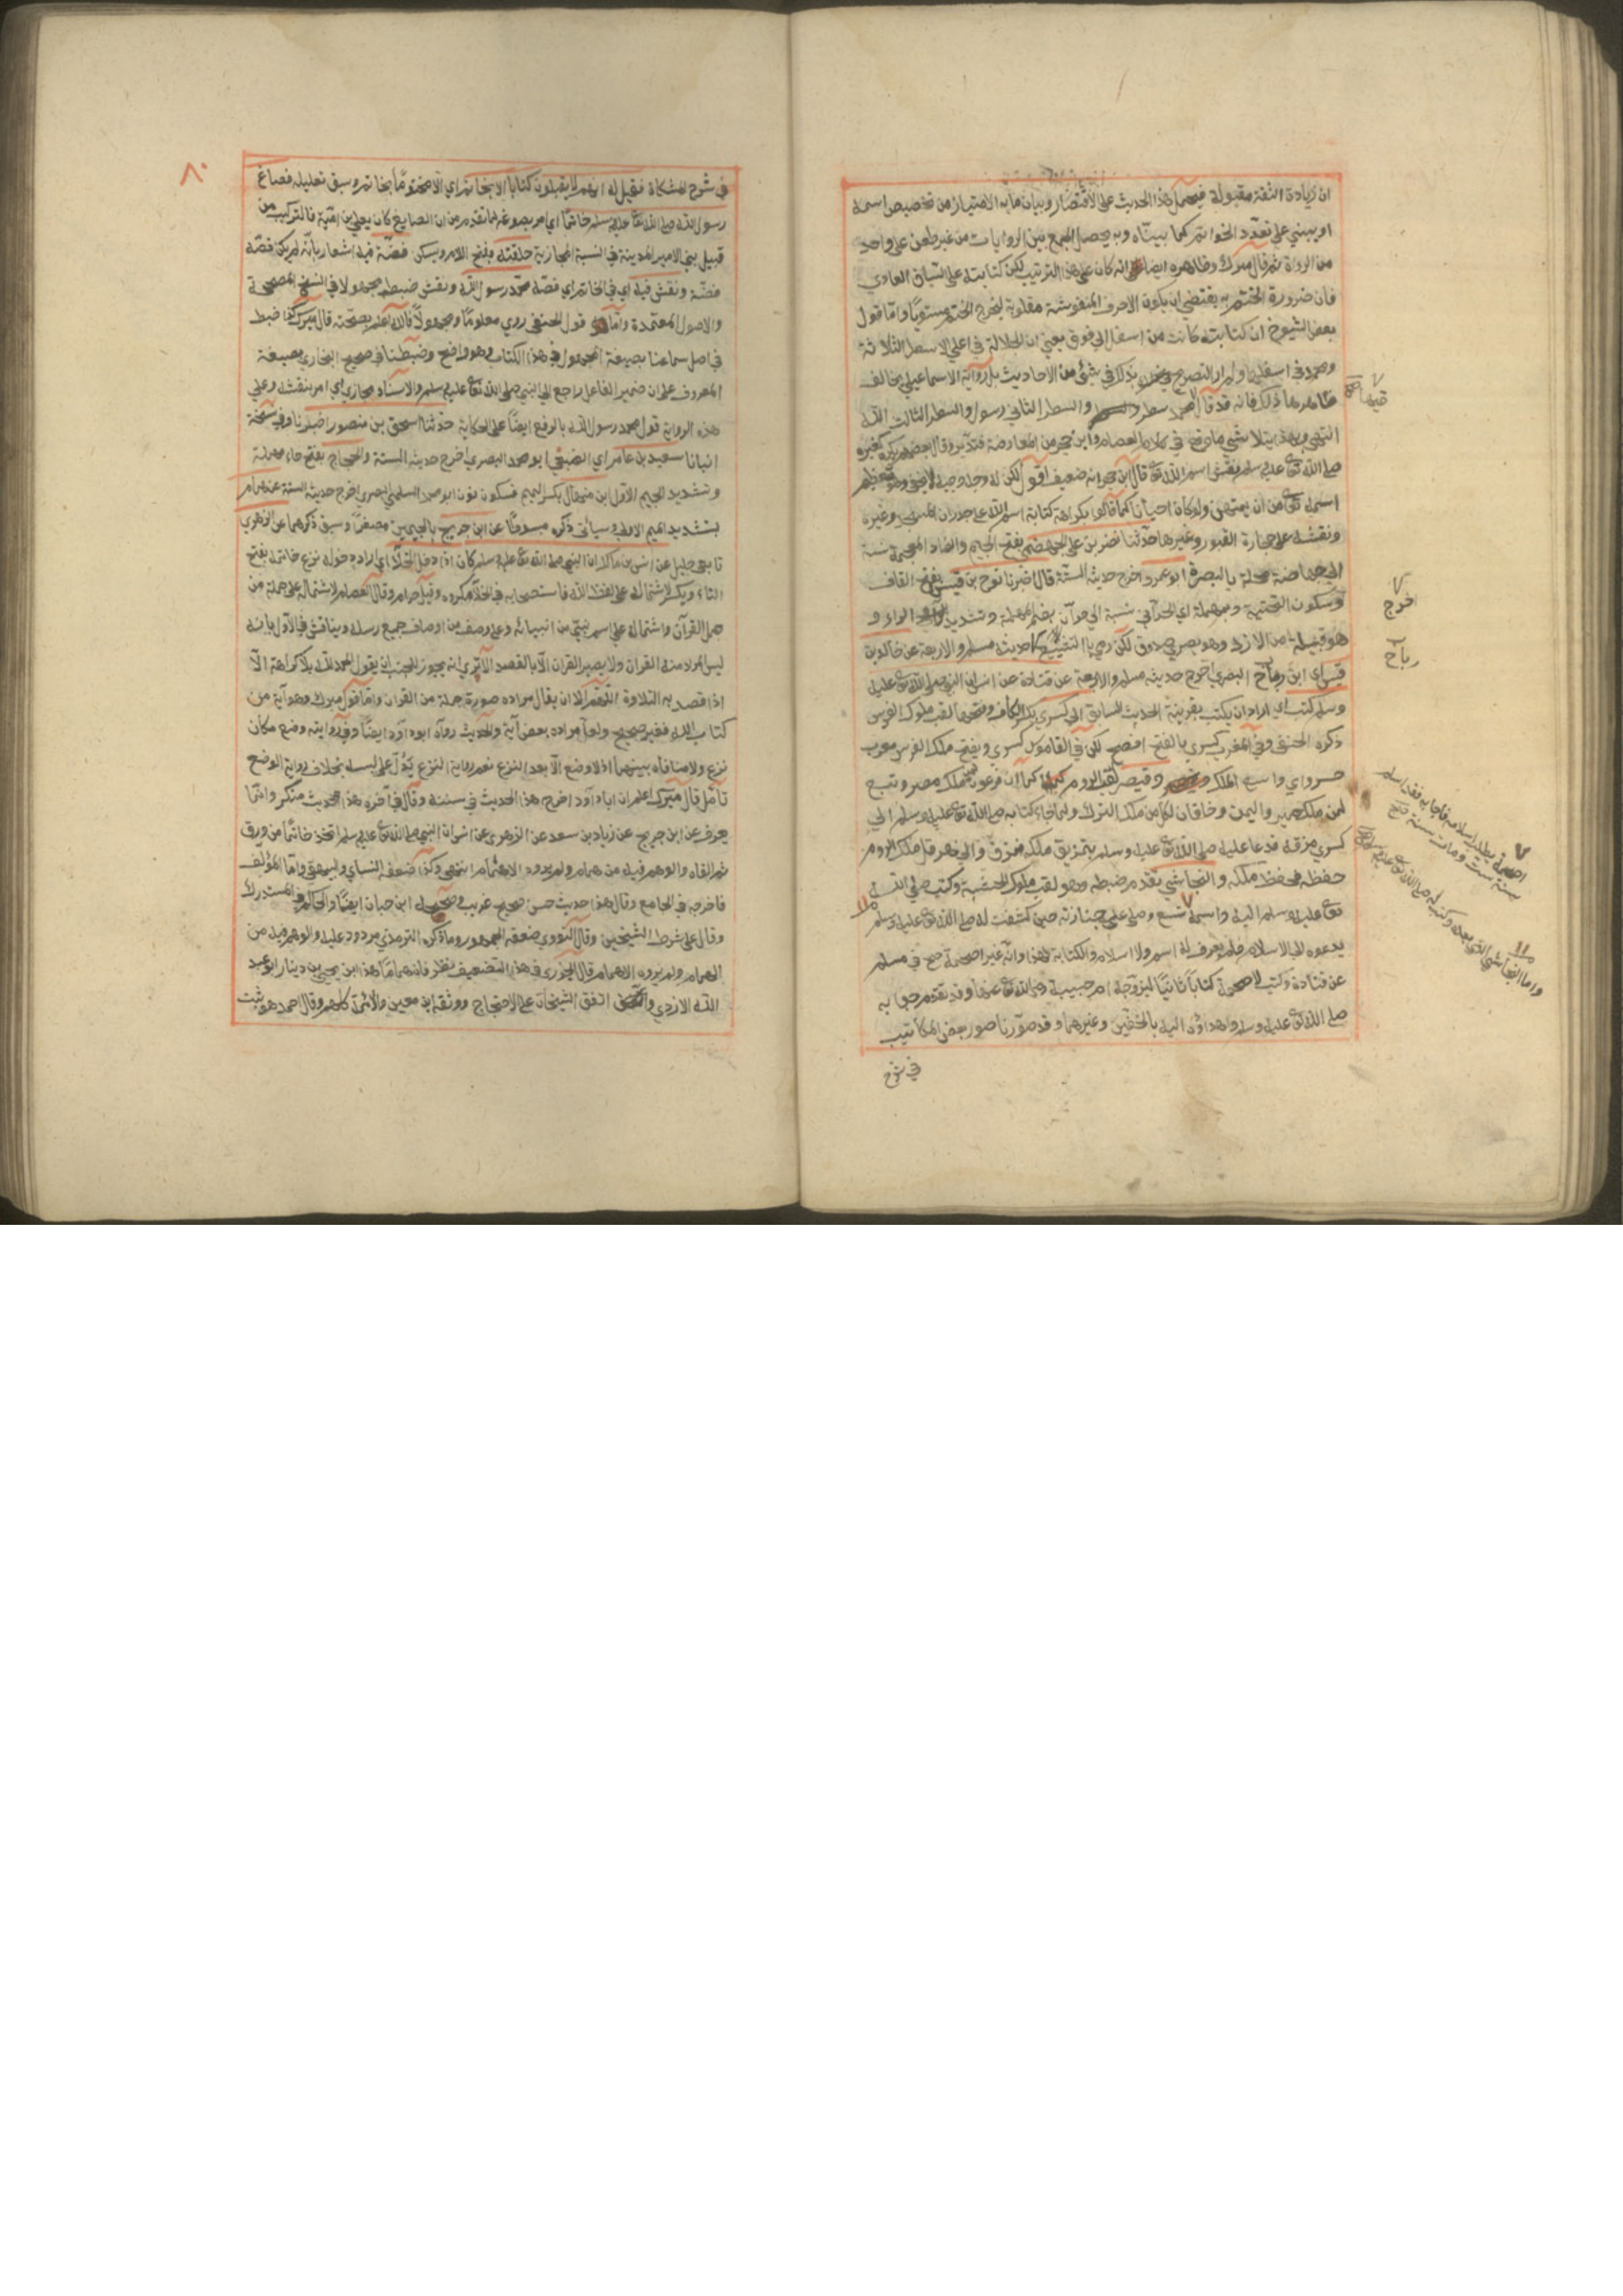 ان زيادة الثقة مقبولة فيحمل هذا الحديث على الاقتصار وبيان ما به الامتياز من تخصيص اسمه
او يبنى على تعدد الخواتم كما بيناه وبه يحصل الجمع بين الروايات من غير طعن على واحد
من الرواة ثم قال ميرك وظاهره ايضا انه كان على هذا الترتيب لكن كتابته على السياق العادي
فان ضرورة الختم به يقتضي ان يكون الاحرف المنقوشة مقلوبة ليخرج الختم مستويا واما قول
بعض الشيوخ ان كتابته كانت من اسفل الى فوق يعني ان الجلالة في اعلى الاسطر الثلاثة
ومحمد في اسفلها ولم ار التصريح بذلك في شئ من الاحاديث بل رواية الاسماعيلي يخالف
ظاهرها ذلك فانه قد قال محمد سطر والسطر الثاني رسول والسطر الثالث الله
انتهى وبهذا يتلاشى ما وقع في كلام العصام وابن حجر من المعارضة فتدبر وقال بعضهم يكره لغيره
صلى الله تعالى عليه وسلم نقش اسم الله تعالى قال ابن حجر انه ضعيف اقول لكن له وجه وجيه لا يخفى وهو تعظيم
اسمه تعالى من ان يمتهن ولو كان احيانا كما قالوا بكراهة كتابة اسم الله على جدران المسجد وغيره
ونقشه على حجارة القبور وغيرها حدثنا نصر بن علي الجهضمي بفتح الجيم والضاد المعجمة نسبة
الى جهاضة محلة بالبصرة ابو عمرو اخرج حديثه الستة قال اخبرنا نوح بن قيس بفتح القاف
وسكون التحتية وبمهملة اي الحداني نسبة الى حدان بضم المهملة وتشديد
هو قبيلة من الازد وهو بصري صدوق لكن رمي بالتشيع حديثه مسلم والاربعة عن خالد بن
قيس اي ابن رباح البصري اخرج حديثه مسلم والاربعة عن قتادة عن انس ان النبي صلى الله تعالى عليه
وسلم كتب اي اراد ان يكتب بقرينة الحديث السابق الى كسرى بكسر الكاف وفتحها لقب ملوك الفرس
ذكره الحنفي وفي المغرب كسرى بالفتح افصح لكن في القاموس كسرى ويفتح ملك الفرس معرب
خسرو اي واسع الملك وقيصر لقب الروم كما ان فرعون لملك مصر وتبع
لمن ملك حمير واليمن وخاقان لكل من ملك الترك ولما جاء كتابه صلى الله تعالى عليه وسلم الى
كسرى مزقه فدعا عليه صلى الله تعالى عليه وسلم بتمزيق ملكه فمزق والى هرقل ملك الروم
حفظه فحفظ ملكه والنجاشي تقدم ضبطه وهو لقب ملوك الحبشة وكتب صلى الله
تعالى عليه وسلم اليه واسمه سنة تسع وصلى على جنازته حين كشفت له صلى الله تعالى عليه وسلم
يدعوه الى الاسلام فلم يعرف له اسم ولا اسلام والكتابة لهذا وانه غير اصحمة صح في مسلم
عن قتادة وكتب لاصحمة كتابا ثانيا ليزوجه ام حبيبة رضي الله تعالى عنها وقد تقدم جوابه
صلى الله تعالى عليه وسلم واهداؤه اليه بالخفين وغيرهما وقد صورنا صور بعض المكاتيب
في شرح
اخرج
رباح
اصحمة يطلب اسلامه فاجابه فقد اسلم
سنة ست ومات سنة
واما النجاشي الذي بعده وكتب له صلى الله تعالى عليه وسلم
٨٠
في شرح المشكاة فقيل له انهم لا يقبلون كتابا الا بخاتم اي الا مختوما بخاتم وسبق تعليله فصاغ
رسول الله صلى الله تعالى عليه وسلم خاتما اي امر بصوغه لما تقدم من ان الصايغ كان يعلى بن امية فالتركيب من
قبيل بنى الامير المدينة في النسبة المجازية حلقته بفتح اللام ويسكن فضة فيه اشعار بانه لم يكن فصه
فضة ونقش فيه اي في الخاتم اي فصه محمد رسول الله ونقش ضبط مجهولا في النسخ المصححة
والاصول المعتمدة واما قول الحنفي روي معلوما ومجهولا فالله اعلم بصحته قال ميرك كذا ضبط
في اصل سماعنا بصيغة المجهول في هذا الكتاب وهو واضح وضبطنا في صحيح البخاري بصيغة
المعروف على ان ضمير الفاعل راجع الى النبي صلى الله تعالى عليه وسلم والاسناد مجازي اي امر بنقشه وعلى
هذه الرواية قول محمد رسول الله بالرفع ايضا على الحكاية حدثنا اسحق بن منصور اخبرنا وفي نسخة
انبانا سعيد بن عامر اي الضبعي ابو محمد البصري اخرج حديثه الستة والحجاج بفتح حاء مهملة
وتشديد الجيم الاول ابن منهال بكسر الميم فسكون نون ابو محمد السلمي البصري اخرج حديثه الستة عن همام
بتشديد الميم الاولى وسياتي ذكره مبسوطا عن ابن جريج بالجيمين مصغرا وسبق ذكرهما عن الزهري
تابعي جليل عن انس بن مالك ان النبي صلى الله تعالى عليه وسلم كان اذا دخل الخلاء اي اراد دخوله نزع خاتمه بفتح
التاء ويكسر لاشتماله على لفظ الله فاستصحابه في الخلاء مكروه وقيل حرام وقال العصام لاشتماله على جملة من
جمل القرآن واشتماله على اسم نبي من انبيائه وعلى وصف من اوصاف جميع رسله ويناقش في الاول بانه
ليس المراد منه القران ولا يصير القران الا بالقصد الا ترى انه يجوز للجنب ان يقول الحمد لله بلا كراهة الا
اذا قصد به التلاوة اللهم الا ان يقال مراده صورة جملة من القران واما قول ميرك وهو آية من
كتاب الله فغير صحيح ولعل مراده بعض آية والحديث رواه ابو داود ايضا وفي روايته وضع مكان
نزع ولا منافاة بينهما اذ لا وضع الا بعد النزع نعم رواية النزع يدل على لبسه بخلاف رواية الوضع
تأمل قال ميرك اعلم ان ابا داود اخرج هذا الحديث في سننه وقال في آخره هذا حديث منكر وانما
يعرف عن ابن جريج عن زياد بن سعد عن الزهري عن انس ان النبي صلى الله تعالى عليه وسلم اتخذ خاتما من ورق
ثم القاه والوهم فيه من همام ولم يروه الا همام انتهى وكذا ضعفه النسائي والبيهقي واما المؤلف
فاخرجه في الجامع وقال هذا حديث حسن صحيح غريب وصححه ابن حبان ايضا والحاكم في المستدرك
وقال على شرط الشيخين وقال النووي ضعفه الجمهور وما ذكره الترمذي مردود عليه والوهم فيه من
الهمام ولم يروه الا همام قال الجزري في هذا التضعيف نظر فان هماما هذا ابن يحيى بن دينار ابو عبد
الله الازدي اتفق الشيخان على الاحتجاج به ووثقه ابن معين والائمة كلهم وقال احمد هو ثبت